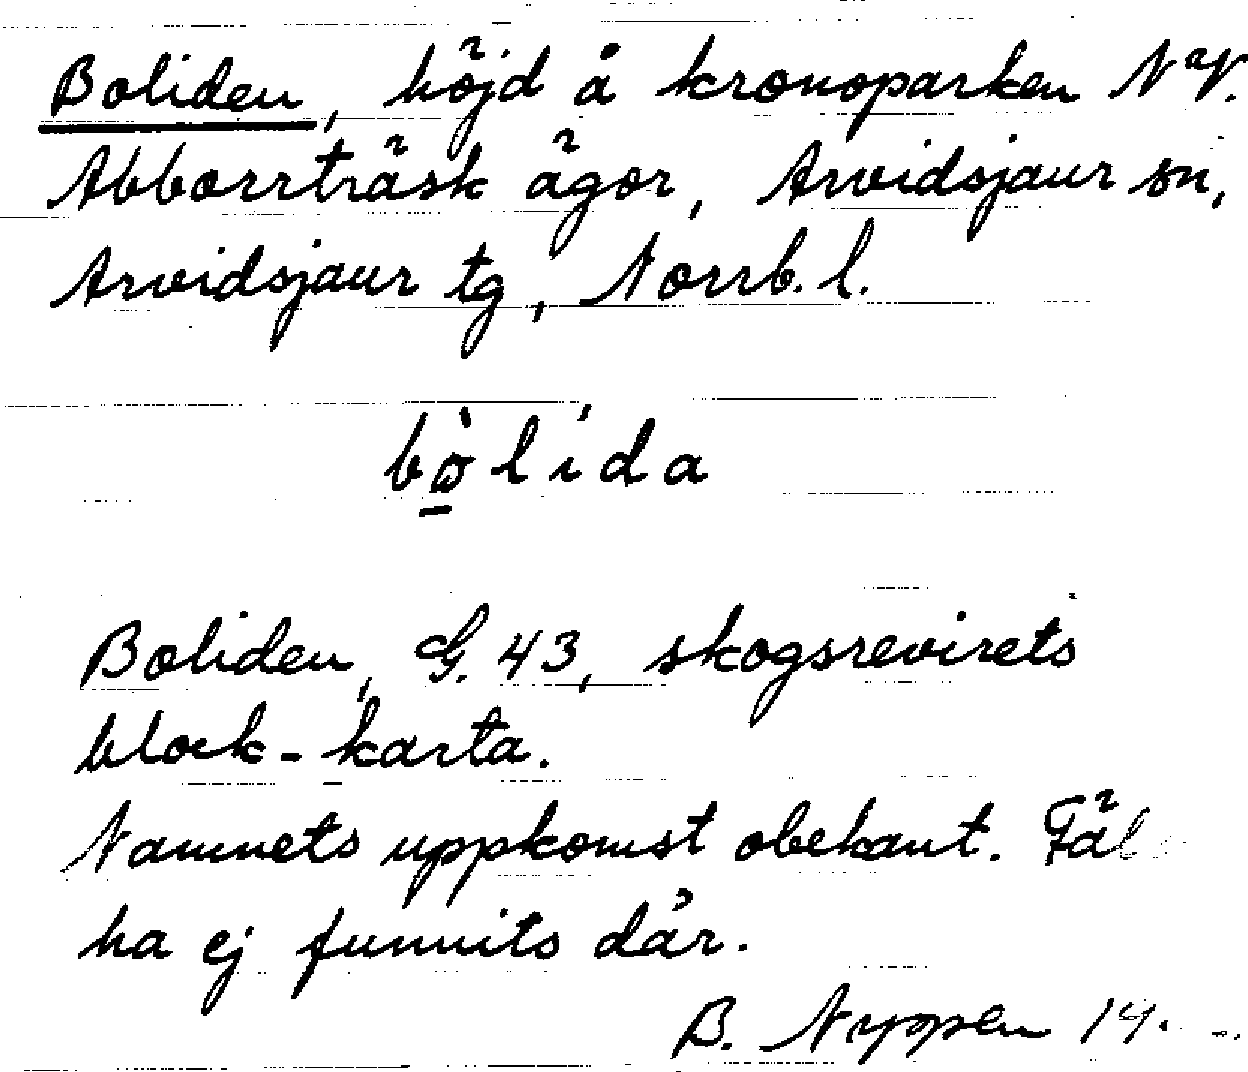 Boliden, höjd å kronoparken NV.
Abborrträsk ägor, Arvidsjaur sn,
Arvidsjaur tg, Norrb. l.
bòlída
Boliden, G. 43, skogsrevirets
block-karta.
Namnets uppkomst obekant.
ha ej funnits där.
B. Nyppen